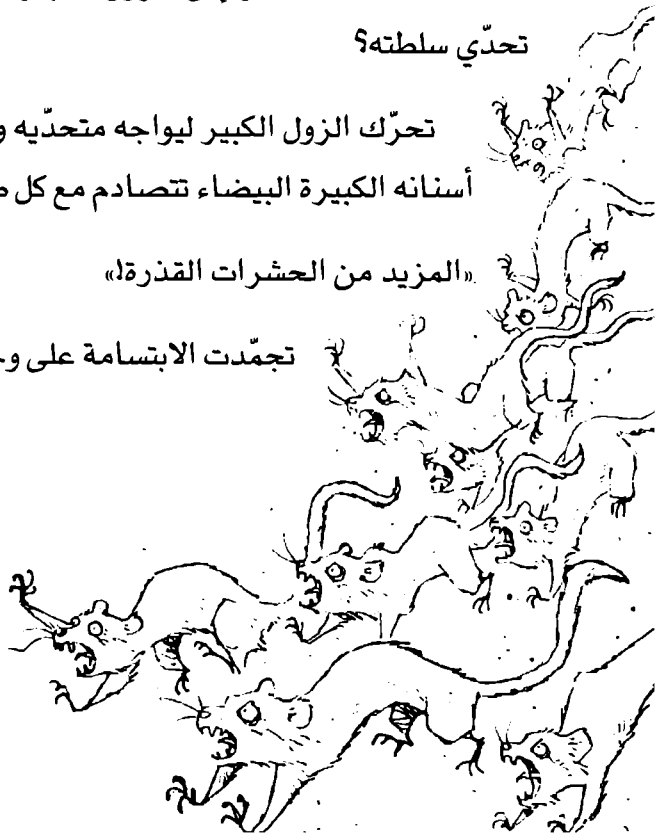 تحدّي سلطته؟
تحرّك الزول الكبير ليواجه متحدّيه و
أسنانه الكبيرة البيضاء تتصادم مع كل
«المزيد من الحشرات القذرة!»
تجمّدت الابتسامة على